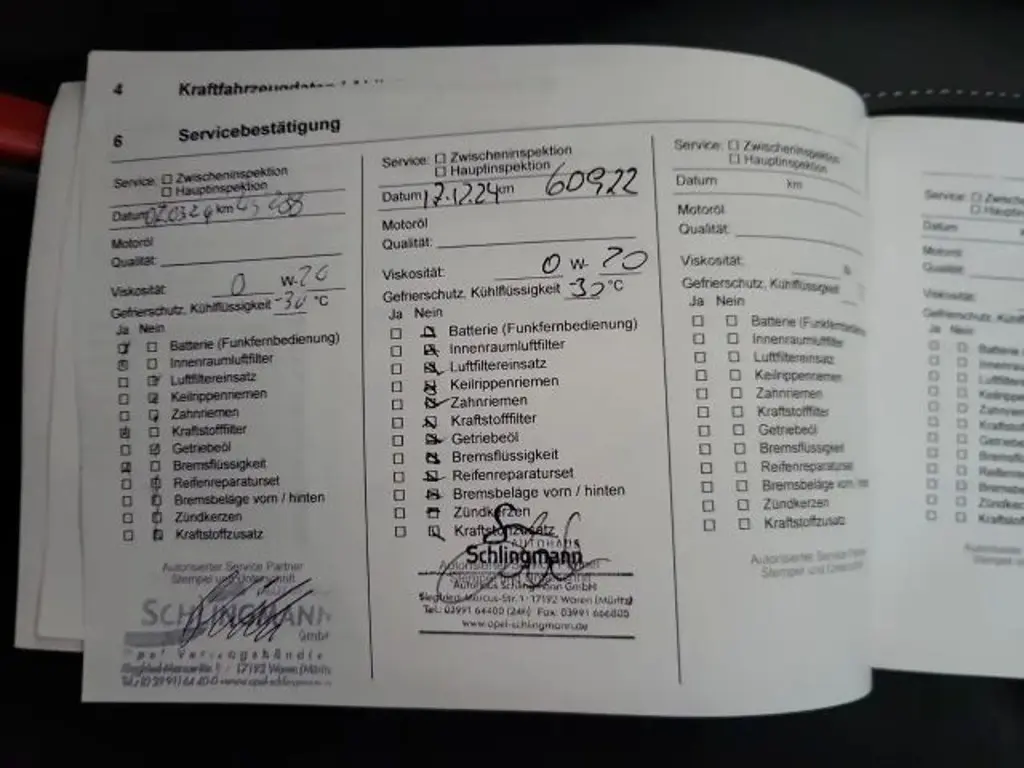 4 Kraftfahrzeugdaten
6 Servicebestätigung
Service: ☐ Zwischeninspektion
☐ Hauptinspektion
Datum 07.03.24 km
Motoröl
Qualität:
Viskosität: 0 W-20
Gefrierschutz, Kühlflüssigkeit -30 °C
Ja Nein
Batterie (Funkfernbedienung)
Innenraumluftfilter
Luftfiltereinsatz
Keilrippenriemen
Zahnriemen
Kraftstofffilter
Getriebeöl
Bremsflüssigkeit
Reifenreparaturset
Bremsbeläge vorn / hinten
Zündkerzen
Kraftstoffzusatz
Autorisierter Service Partner
Stempel und Unterschrift
SCHLINGMANN
GmbH
Opel Vertragshändler
17192 Waren (Müritz)
Service: ☐ Zwischeninspektion
☐ Hauptinspektion
Datum 17.12.24 km 60922
Motoröl
Qualität:
Viskosität: 0 W- 20
Gefrierschutz, Kühlflüssigkeit -30 °C
Ja Nein
Batterie (Funkfernbedienung)
Innenraumluftfilter
Luftfiltereinsatz
Keilrippenriemen
Zahnriemen
Kraftstofffilter
Getriebeöl
Bremsflüssigkeit
Reifenreparaturset
Bremsbeläge vorn / hinten
Zündkerzen
Kraftstoffzusatz
AUTOHAUS
Schlingmann
Autorisierter Service Partner
Autohaus Schlingmann GmbH
Siegfried-Marcus-Str. 1 · 17192 Waren (Müritz)
Tel.: 03991 64400 (24h) Fax: 03991 666800
www.opel-schlingmann.de
Service: ☐ Zwischeninspektion
☐ Hauptinspektion
Datum km
Motoröl
Qualität:
Viskosität:
Gefrierschutz, Kühlflüssigkeit
Ja Nein
Batterie (Funkfernbedienung
Innenraumluftfilter
Luftfiltereinsatz
Keilrippenriemen
Zahnriemen
Kraftstofffilter
Getriebeöl
Bremsflüssigkeit
Reifenreparaturset
Bremsbeläge vorn / hin
Zündkerzen
Kraftstoffzusatz
Autorisierter Service
Stempel und
Service:
Datum
Motoröl
Qualität:
Ja Nein